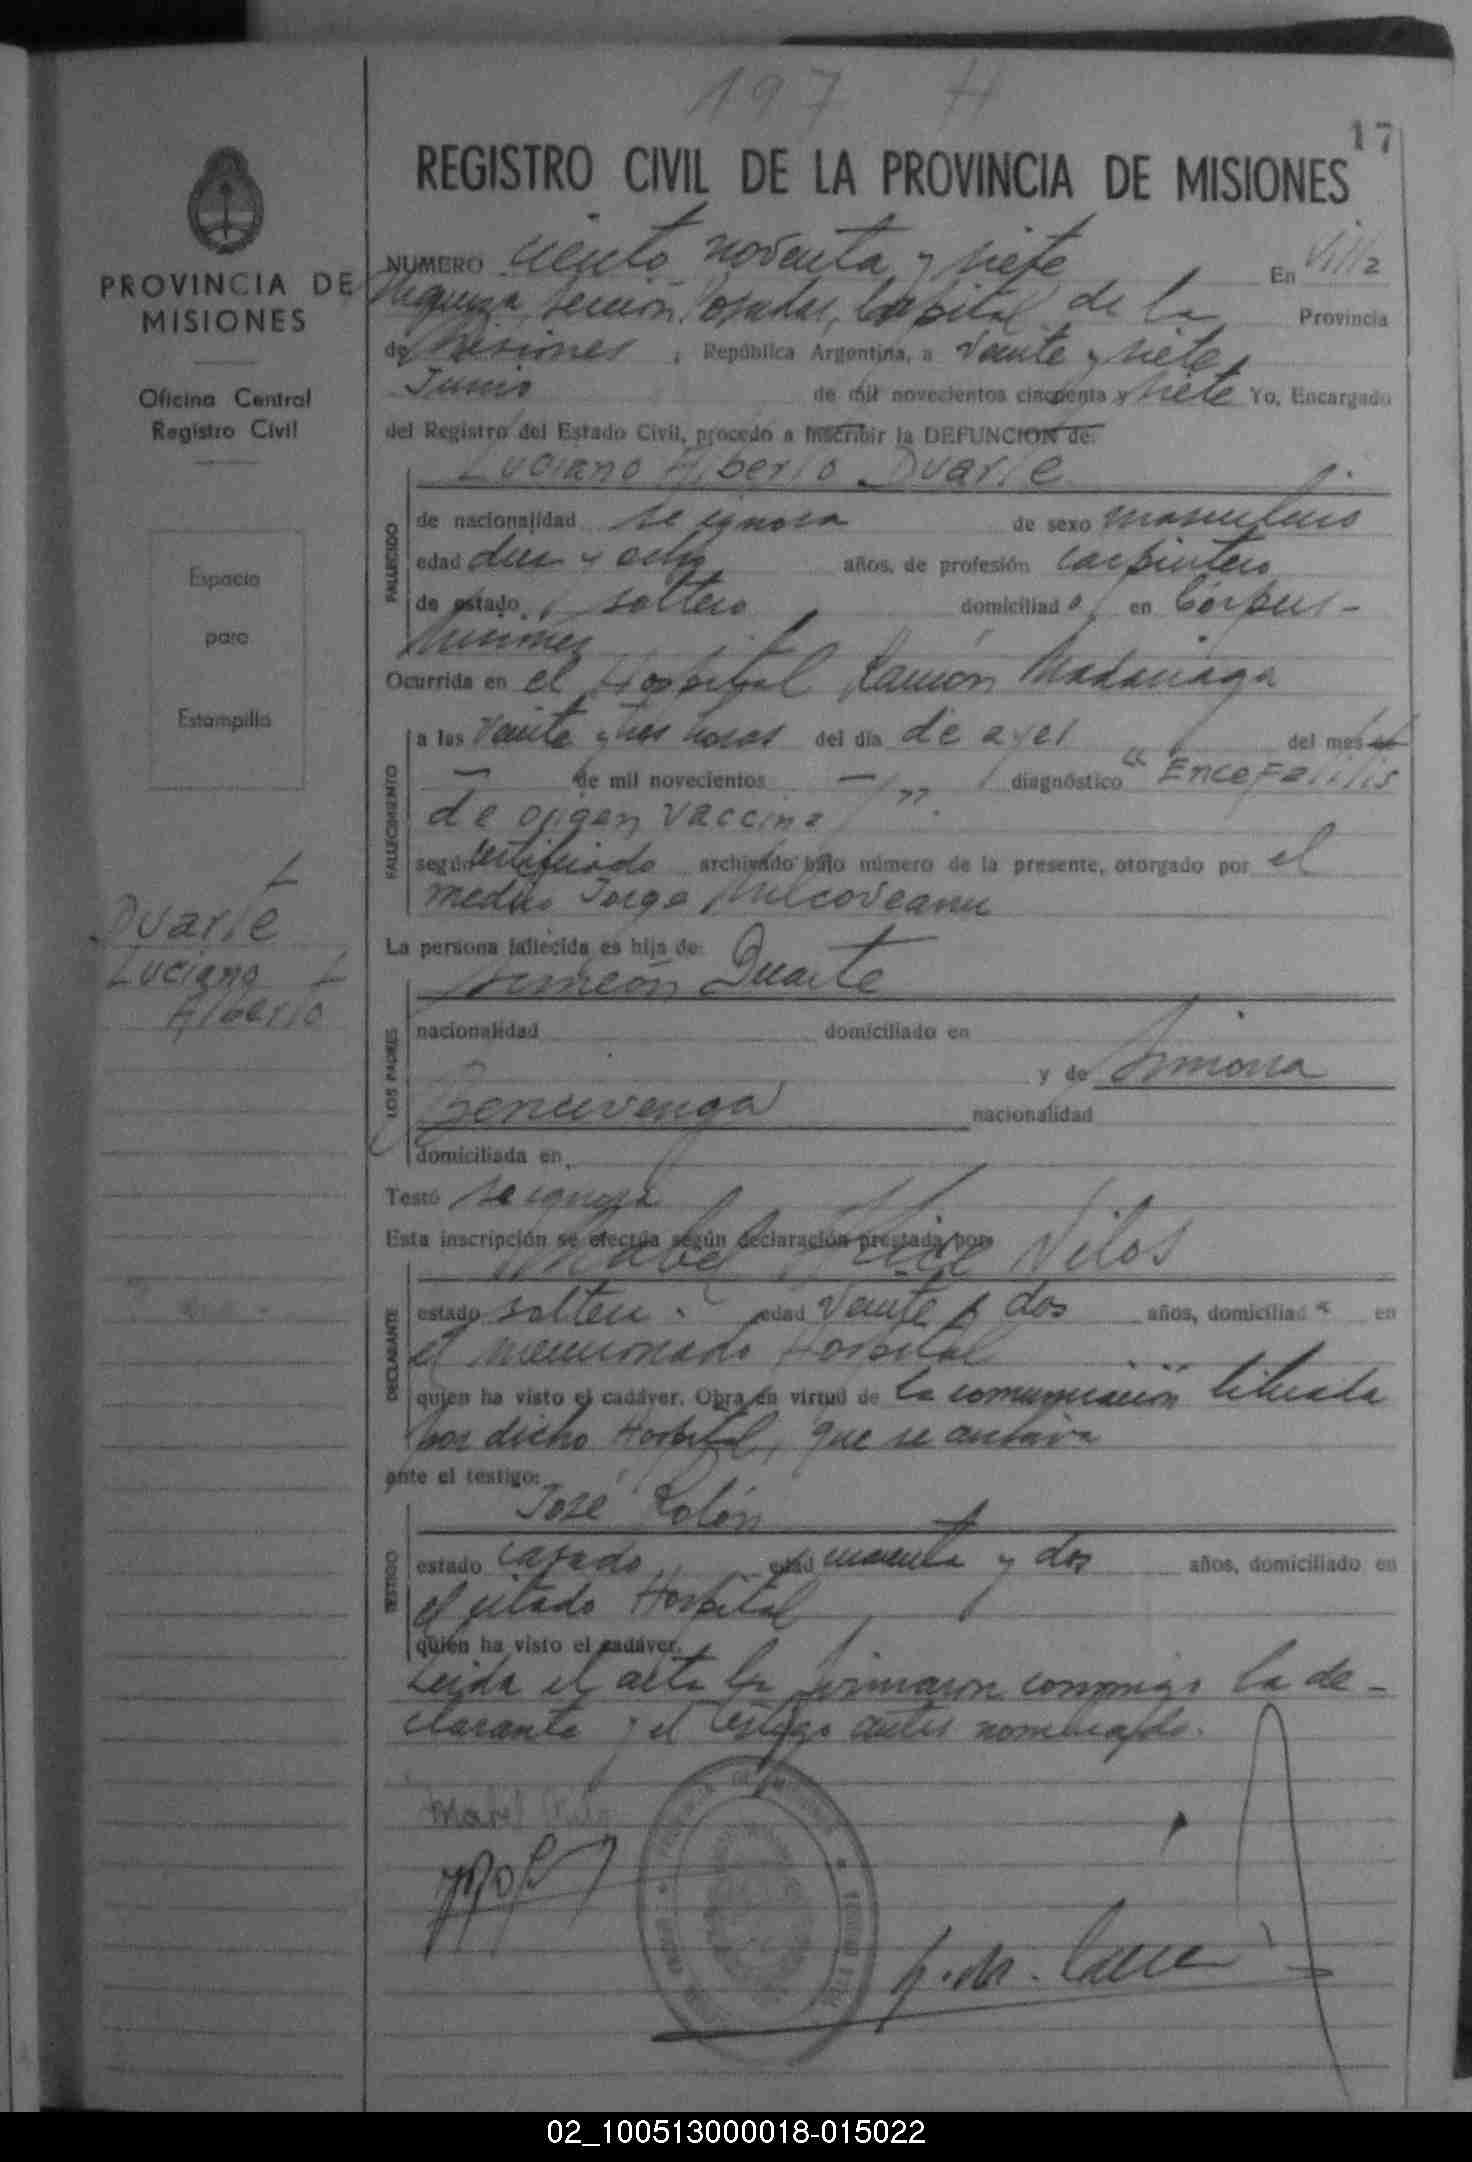 197 H
17
REGISTRO CIVIL DE LA PROVINCIA DE MISIONES
NUMERO ciento noventa y siete En Villa
sección Posadas, Capital de la Provincia
de Misiones, República Argentina, a veinte y siete
Junio de mil novecientos cincuenta y siete Yo, Encargado
del Registro del Estado Civil, procedo a inscribir la DEFUNCION de:
Luciano Alberto Duarte
FALLECIDO
de nacionalidad se ignora de sexo masculino
edad diez y ocho años, de profesión carpintero
de estado soltero domiciliado en Corpus-
Misiones
Ocurrida en el Hospital Ramón Madariaga
FALLECIMIENTO
a las veinte y tres horas del día de ayer del mes de
— de mil novecientos — diagnóstico "Encefalitis
de origen vaccina".
según certificado archivado bajo número de la presente, otorgado por el
medico Jorge
La persona fallecida es hija de:
LOS PADRES
Simeón Duarte
nacionalidad domiciliado en
y de Simona
Bencivenga nacionalidad
domiciliada en
Testó se ignora
Esta inscripción se efectúa según declaración prestada por:
DECLARANTE
Mabel Vilos
estado soltera edad veinte y dos años, domiciliada en
el mencionado Hospital
quien ha visto el cadáver. Obra en virtud de la comunicación librada
por dicho Hospital, que se archiva
ante el testigo:
TESTIGO
José Rolón
estado casado edad cuarenta y dos años, domiciliado en
el citado Hospital
quien ha visto el cadáver.
Leida el acta la firmaron conmigo la de-
clarante y el testigo antes nombrado.
Mabel
PROVINCIA DE MISIONES
Oficina Central
Registro Civil
Espacio
para
Estampilla
Duarte
Luciano
Alberto
02_100513000018-015022